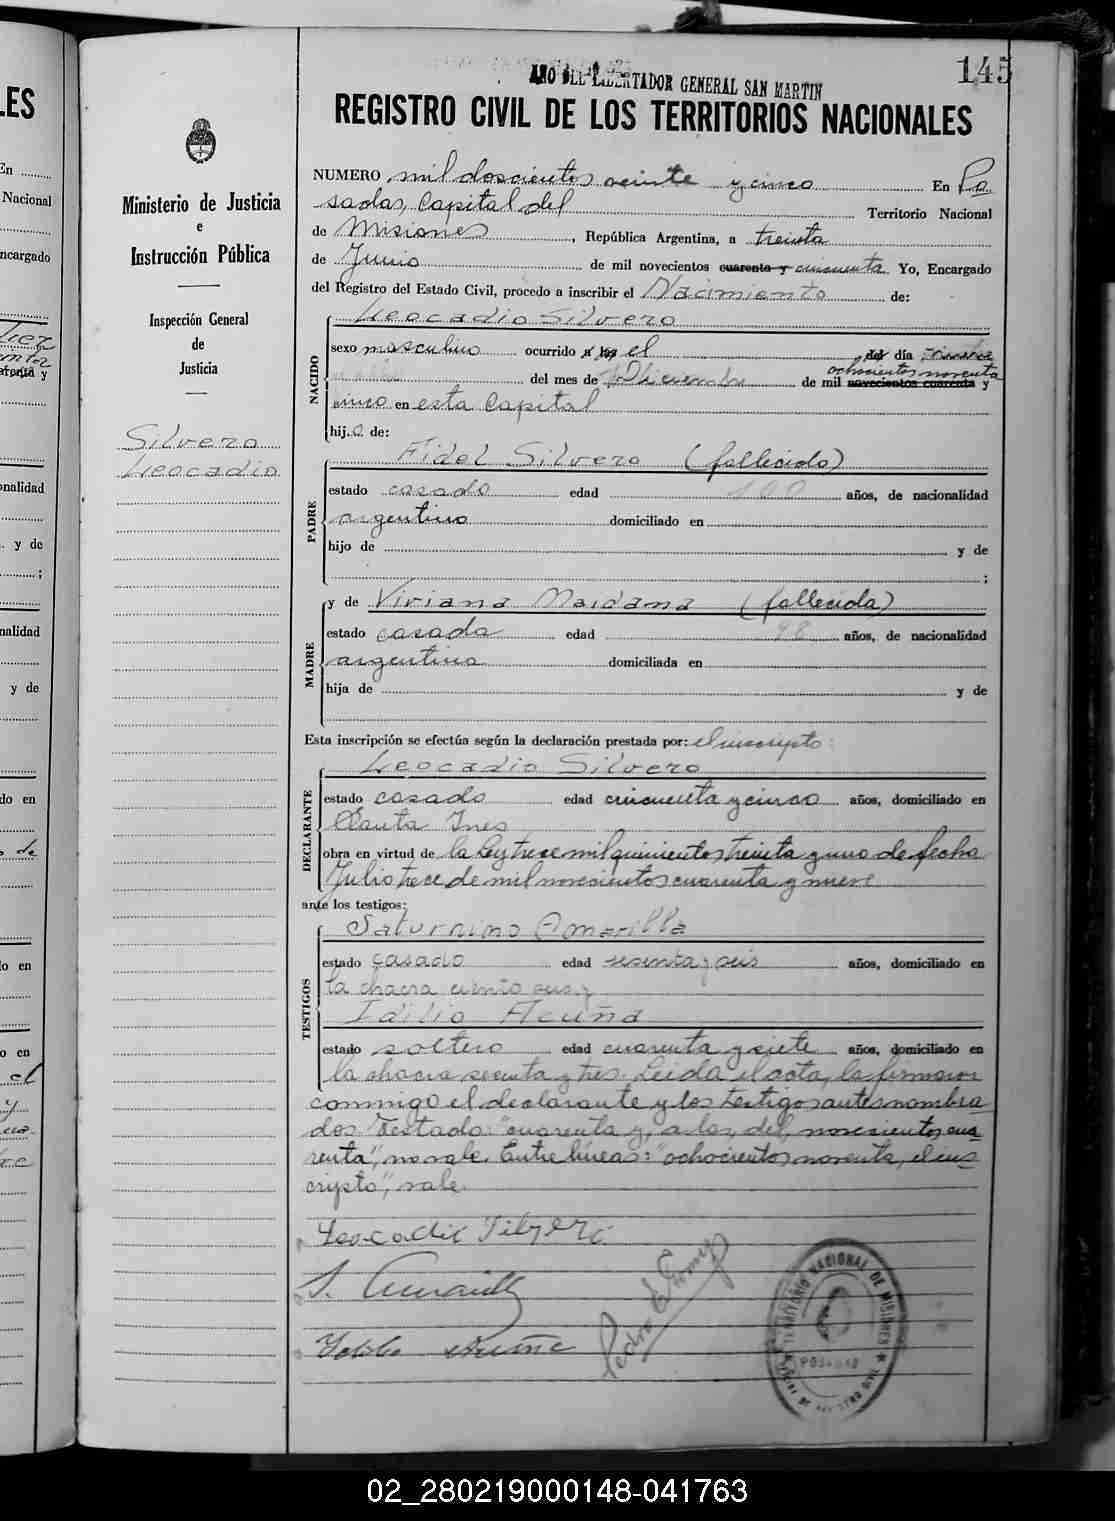 145
AÑO DEL LIBERTADOR GENERAL SAN MARTIN
REGISTRO CIVIL DE LOS TERRITORIOS NACIONALES
Ministerio de Justicia
e
Instrucción Pública
Inspección General
de
Justicia
Silvero
Leocadio
NUMERO mil doscientos veinte y cinco En Po
sadas, Capital del Territorio Nacional
de Misiones, República Argentina, a treinta
de Junio de mil novecientos cuarenta y cincuenta Yo, Encargado
del Registro del Estado Civil, procedo a inscribir el Nacimiento de:
NACIDO
Leocadio Silvero
sexo masculino ocurrido a las el del día
ochocientos noventa
del mes de Diciembre de mil novecientos cuarenta y
cinco en esta Capital
hijo de:
PADRE
Fidel Silvero (fallecido)
estado casado edad 100 años, de nacionalidad
argentino domiciliado en
hijo de y de
;
MADRE
y de Viviana Maidana (fallecida)
estado casada edad 98 años, de nacionalidad
argentina domiciliada en
hija de y de
Esta inscripción se efectúa según la declaración prestada por: el inscripto:
DECLARANTE
Leocadio Silvero
estado casado edad cincuenta y cinco años, domiciliado en
Santa Ines
obra en virtud de la Ley trece mil quinientos treinta y uno de fecha
Julio trece de mil novecientos cuarenta y nueve
ante los testigos:
TESTIGOS
Saturnino Amarilla
estado casado edad sesenta y seis años, domiciliado en
la chacra ciento seis y
Idilio Acuña
estado soltero edad cuarenta y siete años, domiciliado en
la chacra sesenta y tres. Leida el acta, la firmaron
conmigo el declarante y los testigos antes nombra-
dos Testado: "cuarenta y, a las, del, novecientos cua
renta", no vale. Entre líneas: "ochocientos noventa, el ins
cripto", vale.
Leocadio Silvero
S. Amarilla
Idilio Acuña
TERRITORIO NACIONAL DE MISIONES
POSADAS
02_280219000148-041763